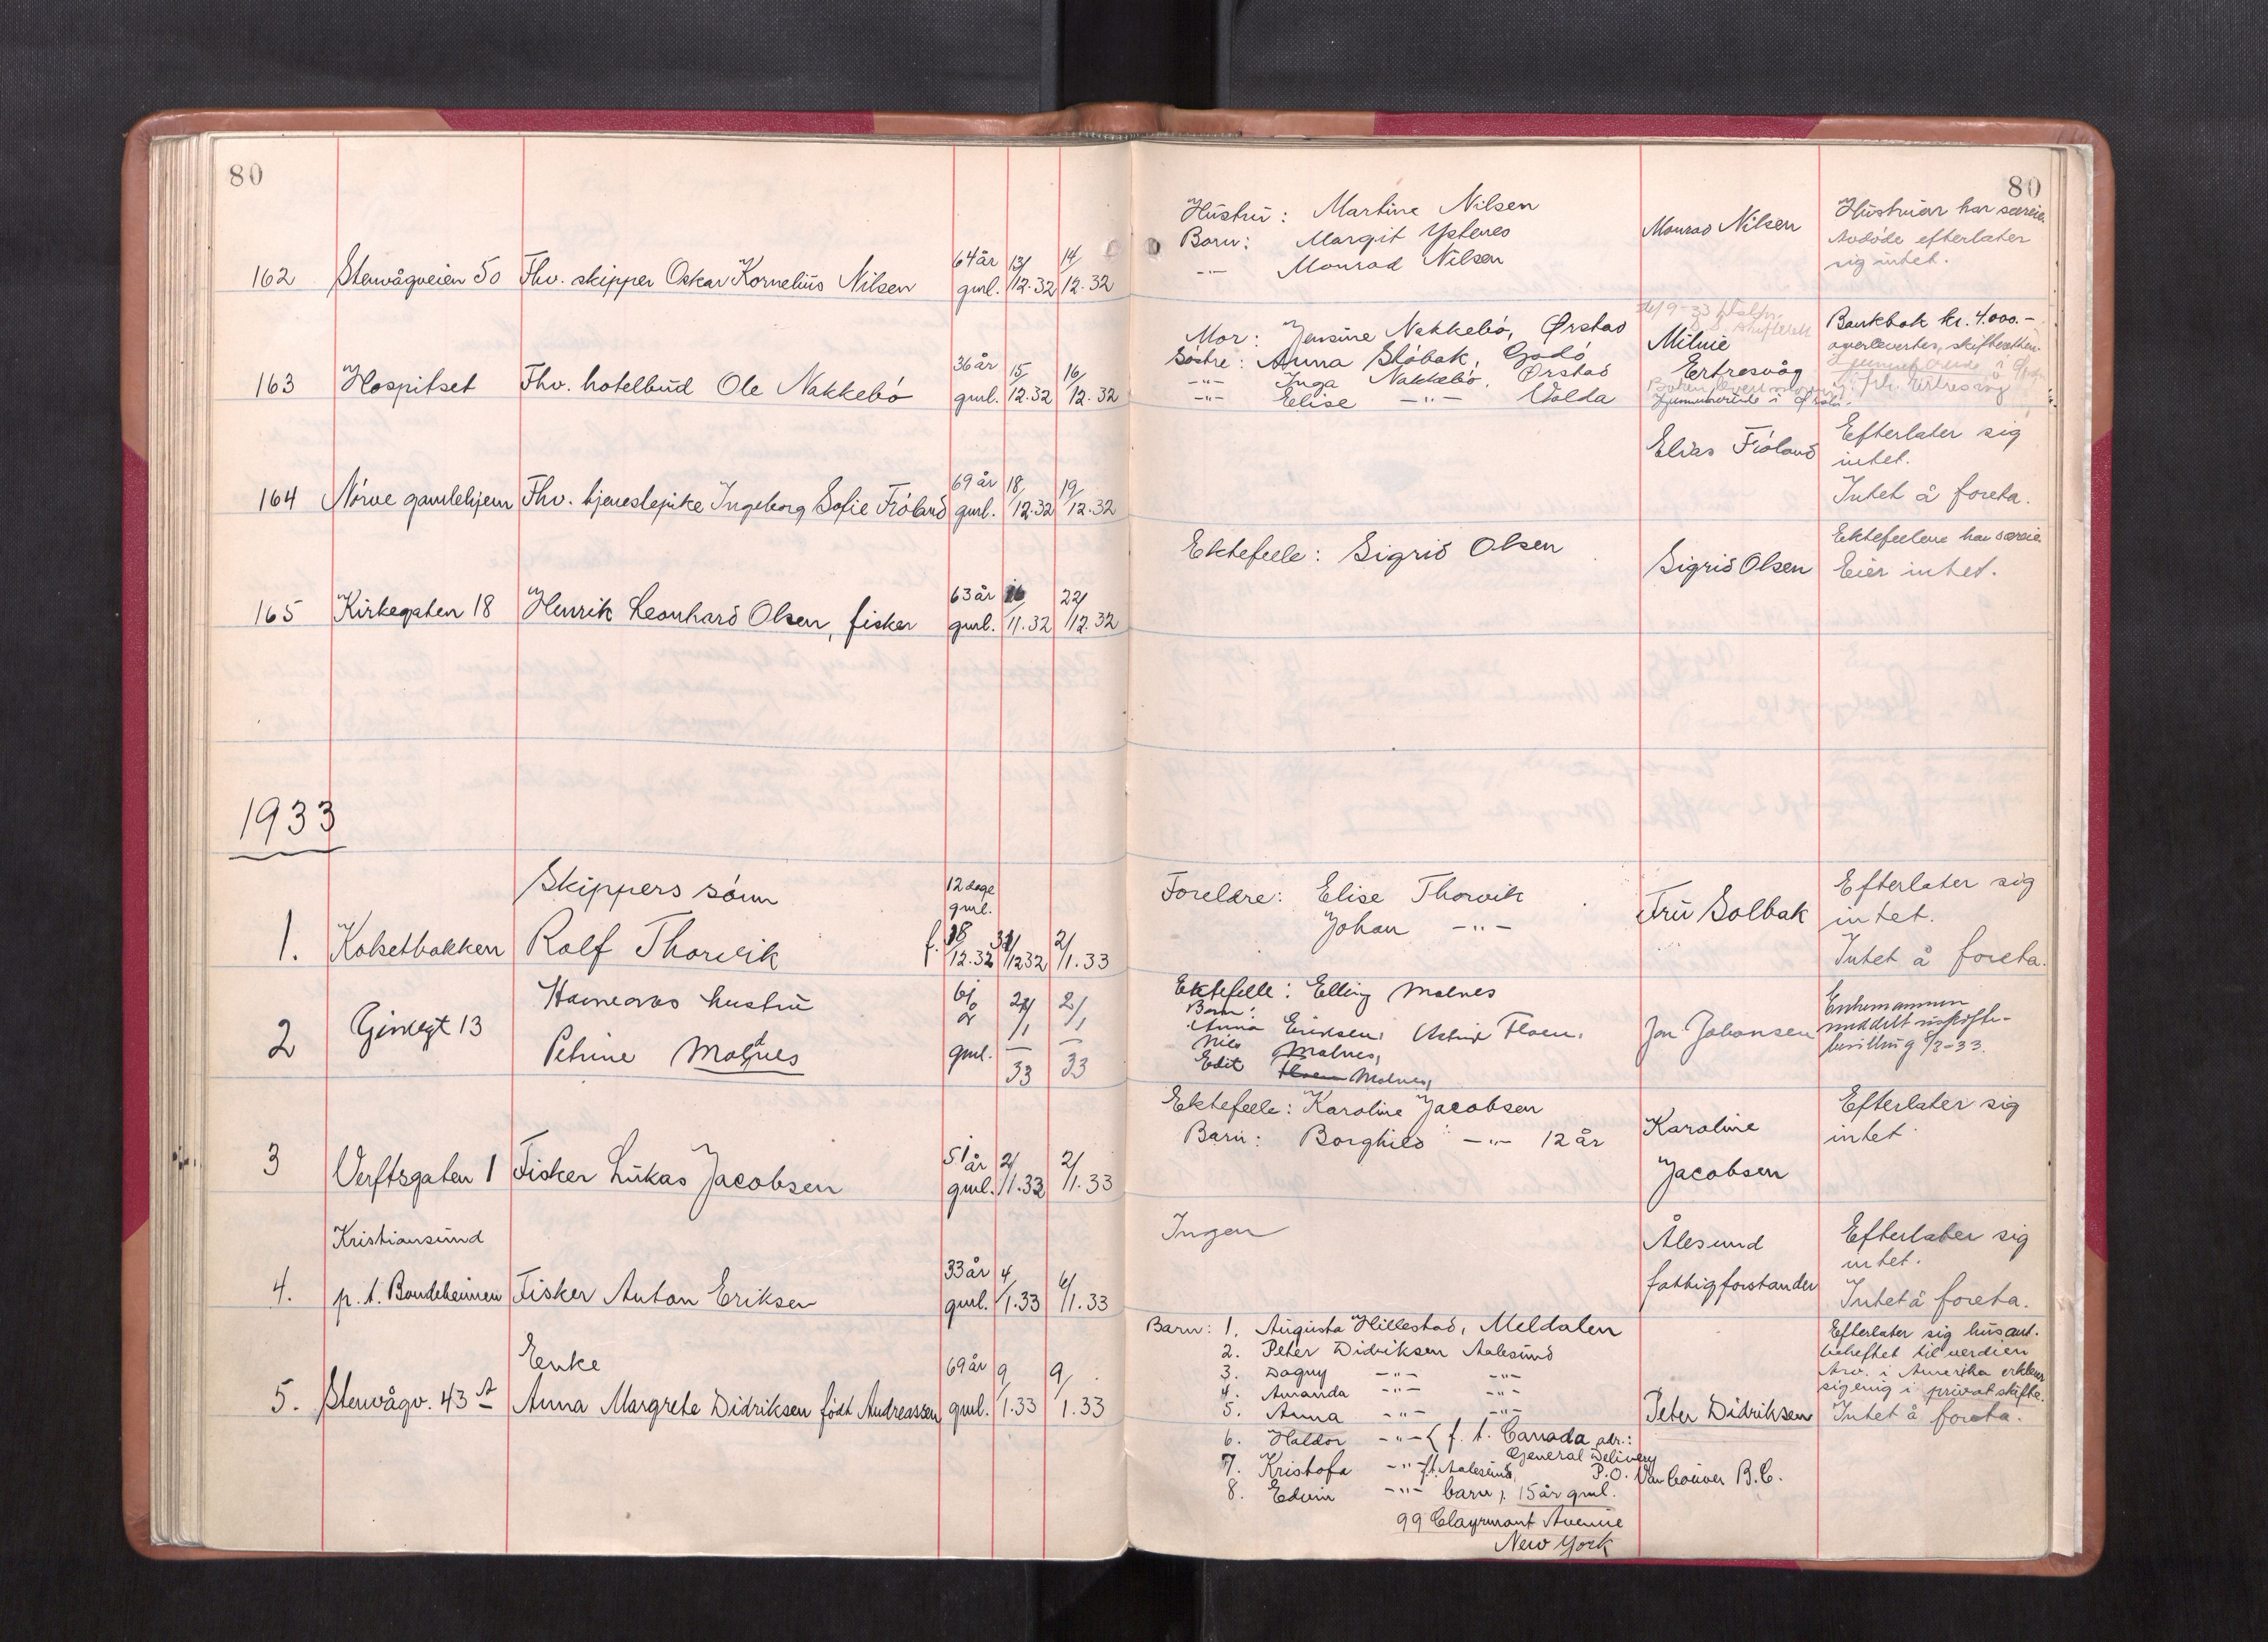 80
162 Stenvågveien 50 Fhv. skipper Oskar Kornelius Nilsen 64 år gml. 13/12.32 14/12.32
163 Hospitset Fhv. hotelbud Ole Nakkebø 36 år gml. 15/12.32 16/12.32
164 Nørve gamlehjem Fhv. tjenestepike Ingeborg Sofie Frøland 69 år gml. 18/12.32 19/12.32
165 Kirkegaten 18 Henrik Leonhard Olsen, fisker 63 år gml. 16/11.32 22/12.32
1933
Skippers sønn 12 dage gml.
1. Kolsetbakken Rolf Thorvik f. 18/12.32 31/12 32 2/1.33
2 Girmegt 13 Havnearb hustru
Petrine Molnes 61 år gml. 2/1 33 2/1 33
3 Verftsgaten 1 Fisker Lukas Jacobsen 51 år gml. 2/1.33 2/1.33
Kristiansund
4. p.t. Bondeheimen Fisker Anton Eriksen 33 år gml. 4/1.33 6/1.33
Enke
5. Stenvågv. 43 A Anna Margrete Didriksen født Andreassen 69 år gml. 9/1.33 9/1.33
80
Hustru: Martine Nilsen
Barn: Margit Ystenes
-"- Monrad Nilsen
Monrad Nilsen
Hustruen har særeie
Avdøde efterlater
sig intet.
Mor: Jensine Nakkebø, Ørstad
Søstre: Anna Støbak, Godø
-"- Inga Nakkebø, Ørstad
-"- Elise -"- Volda
Milnie
Ertresvåg
Bankbok kr. 4.000.-
overlevertes, skifteretten
Elias Frøland
Efterlater sig
intet.
Intet å foreta.
Ektefelle: Sigrid Olsen
Sigrid Olsen
Ektefellene har særeie
Eier intet.
Foreldre: Elise Thorvik
Johan -"-
Fru Solbak
Efterlater sig
intet.
Intet å foreta.
Ektefelle: Elling Molnes
Barn:
Anna Eriksen, Astrid Floen,
Nils Molnes,
Edit Floen Molnes,
Jon Johansen
Enkemannen
meddelt uskifte-
bevilling 8/3-33.
Ektefelle: Karoline Jacobsen
Barn: Borghild -"- 12 år
Karoline
Jacobsen
Efterlater sig
intet
Ingen
Ålesund
fattigforstander
Efterlater sig
intet.
Intet å foreta.
Barn: 1. Augusta Hillestad, Meldalen
2. Peter Didriksen Aalesund
3. Dagny -"- -"-
4. Amanda -"- -"-
5. Anna -"- -"-
6. Haldor -"- f. t. Canada adr.:
General Delivery
7. Kristofa -"- f.t. Aalesund, P.O. Vancouver B.C.
8. Edvin -"- barn, 15 år gml.
99 Clayrmont Avenue
New York
Peter Didriksen
Efterlater sig hus ant.
beheftet til verdien
Arv. i Amerika erklærer
sig enig i privat skifte.
Intet å foreta.